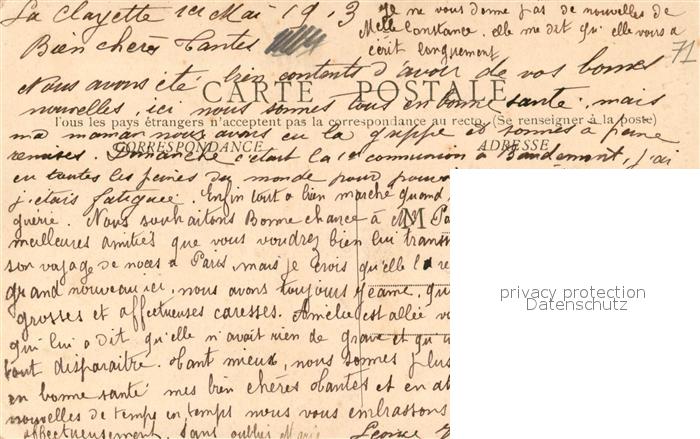 La Clayette 1er Mai 1913
Bien chères Tantes
Je ne vous donne pas de nouvelles de
Melle Constance. elle me dit qu'elle vous a
écrit longuement
71
Nous avons été bien contents d'avoir de vos bonnes
CARTE POSTALE
nouvelles, ici nous sommes tous en bonne santé. mais
Tous les pays étrangers n'acceptent pas la correspondance au recto. (Se renseigner à la poste)
ma maman nous avons eu la grippe et sommes à peine
CORRESPONDANCE ADRESSE
remises. Dimanche c'était la 1e communion à Baudemont, j'ai
eu toutes les peines du monde pour pouvo
j'étais fatiguée. Enfin tout a bien marché quand
guérie. Nous souhaitons Bonne chance à
M
meilleures amitiés que vous voudrez bien lui transm
son voyage de noces à Paris, mais je crois qu'elle la re
grand nouveau ici, nous avons toujours Jeanne, qu
grosses et affectueuses caresses. Amélie est allée v
qui lui a dit qu'elle n'avait rien de grave et qu'
tout disparaitre. Tant mieux, nous sommes plus
en bonne santé mes bien chères Tantes et en at
nouvelles de temps en temps nous vous embrassons
affectueusement sans oublier Marie
privacy protection
Datenschutz